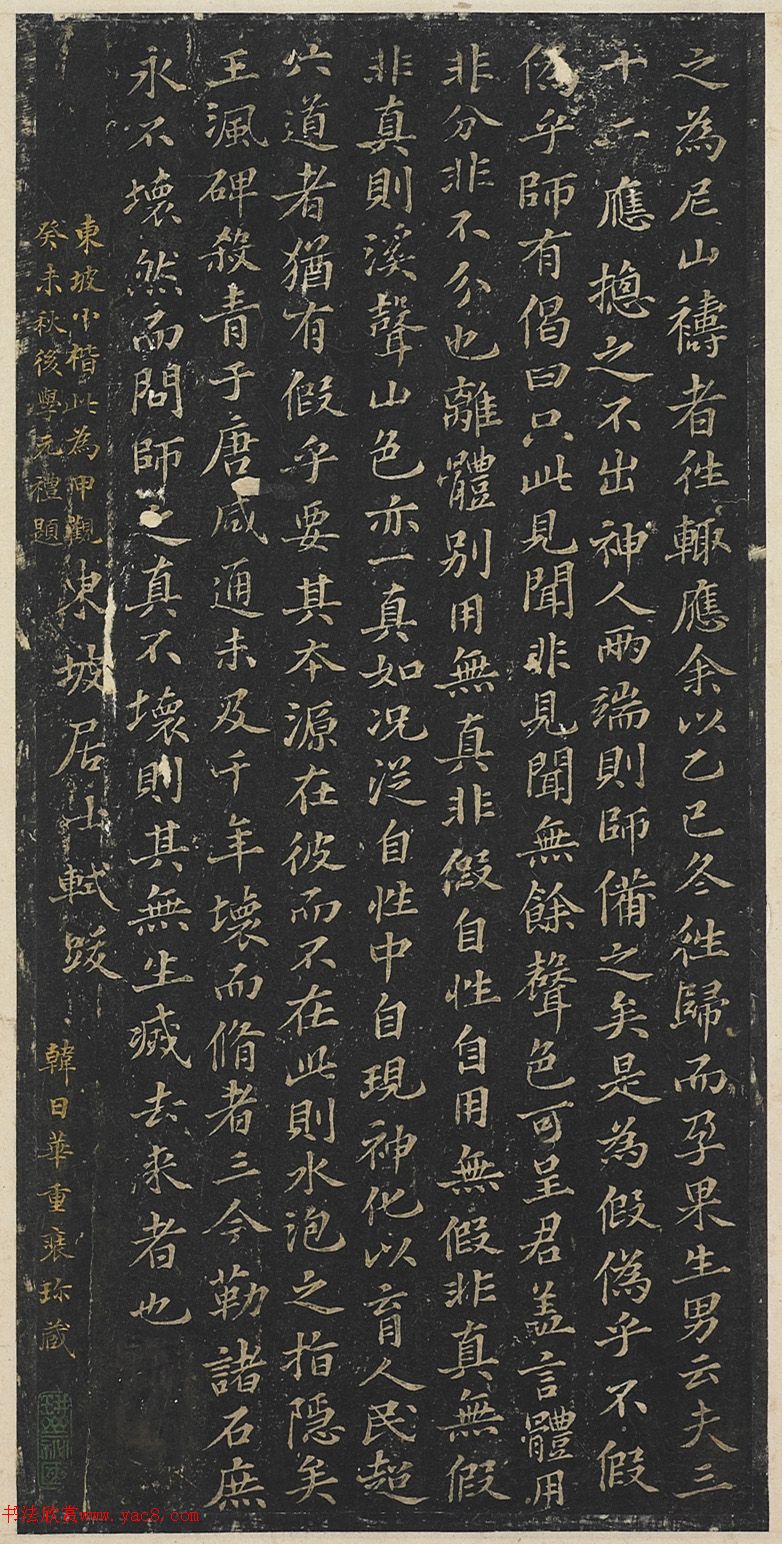 之為尼山禱者往輙應余以乙巳冬往歸而孕果生男云夫三
十二應揔之不出神人兩端則師備之矣是為假偽乎不假
偽乎師有偈曰只此見聞非見聞無餘聲色可呈君盖言體用
非分非不分也離體別用無真非假自性自用無假非真無假
非真則溪聲山色亦一真如况從自性中自現神化以育人民超
六道者猶有假乎要其本源在彼而不在此則水泡之指隱矣
王渢碑殺青于唐咸通未及千年壞而脩者三今勒諸石庶
永不壞然而問師之真不壞則其無生滅去來者也
東坡居士軾跋
東坡小楷此為神觀
癸未秋後學元禮題
韓日華重裝珎藏
书法欣赏www.yac8.com